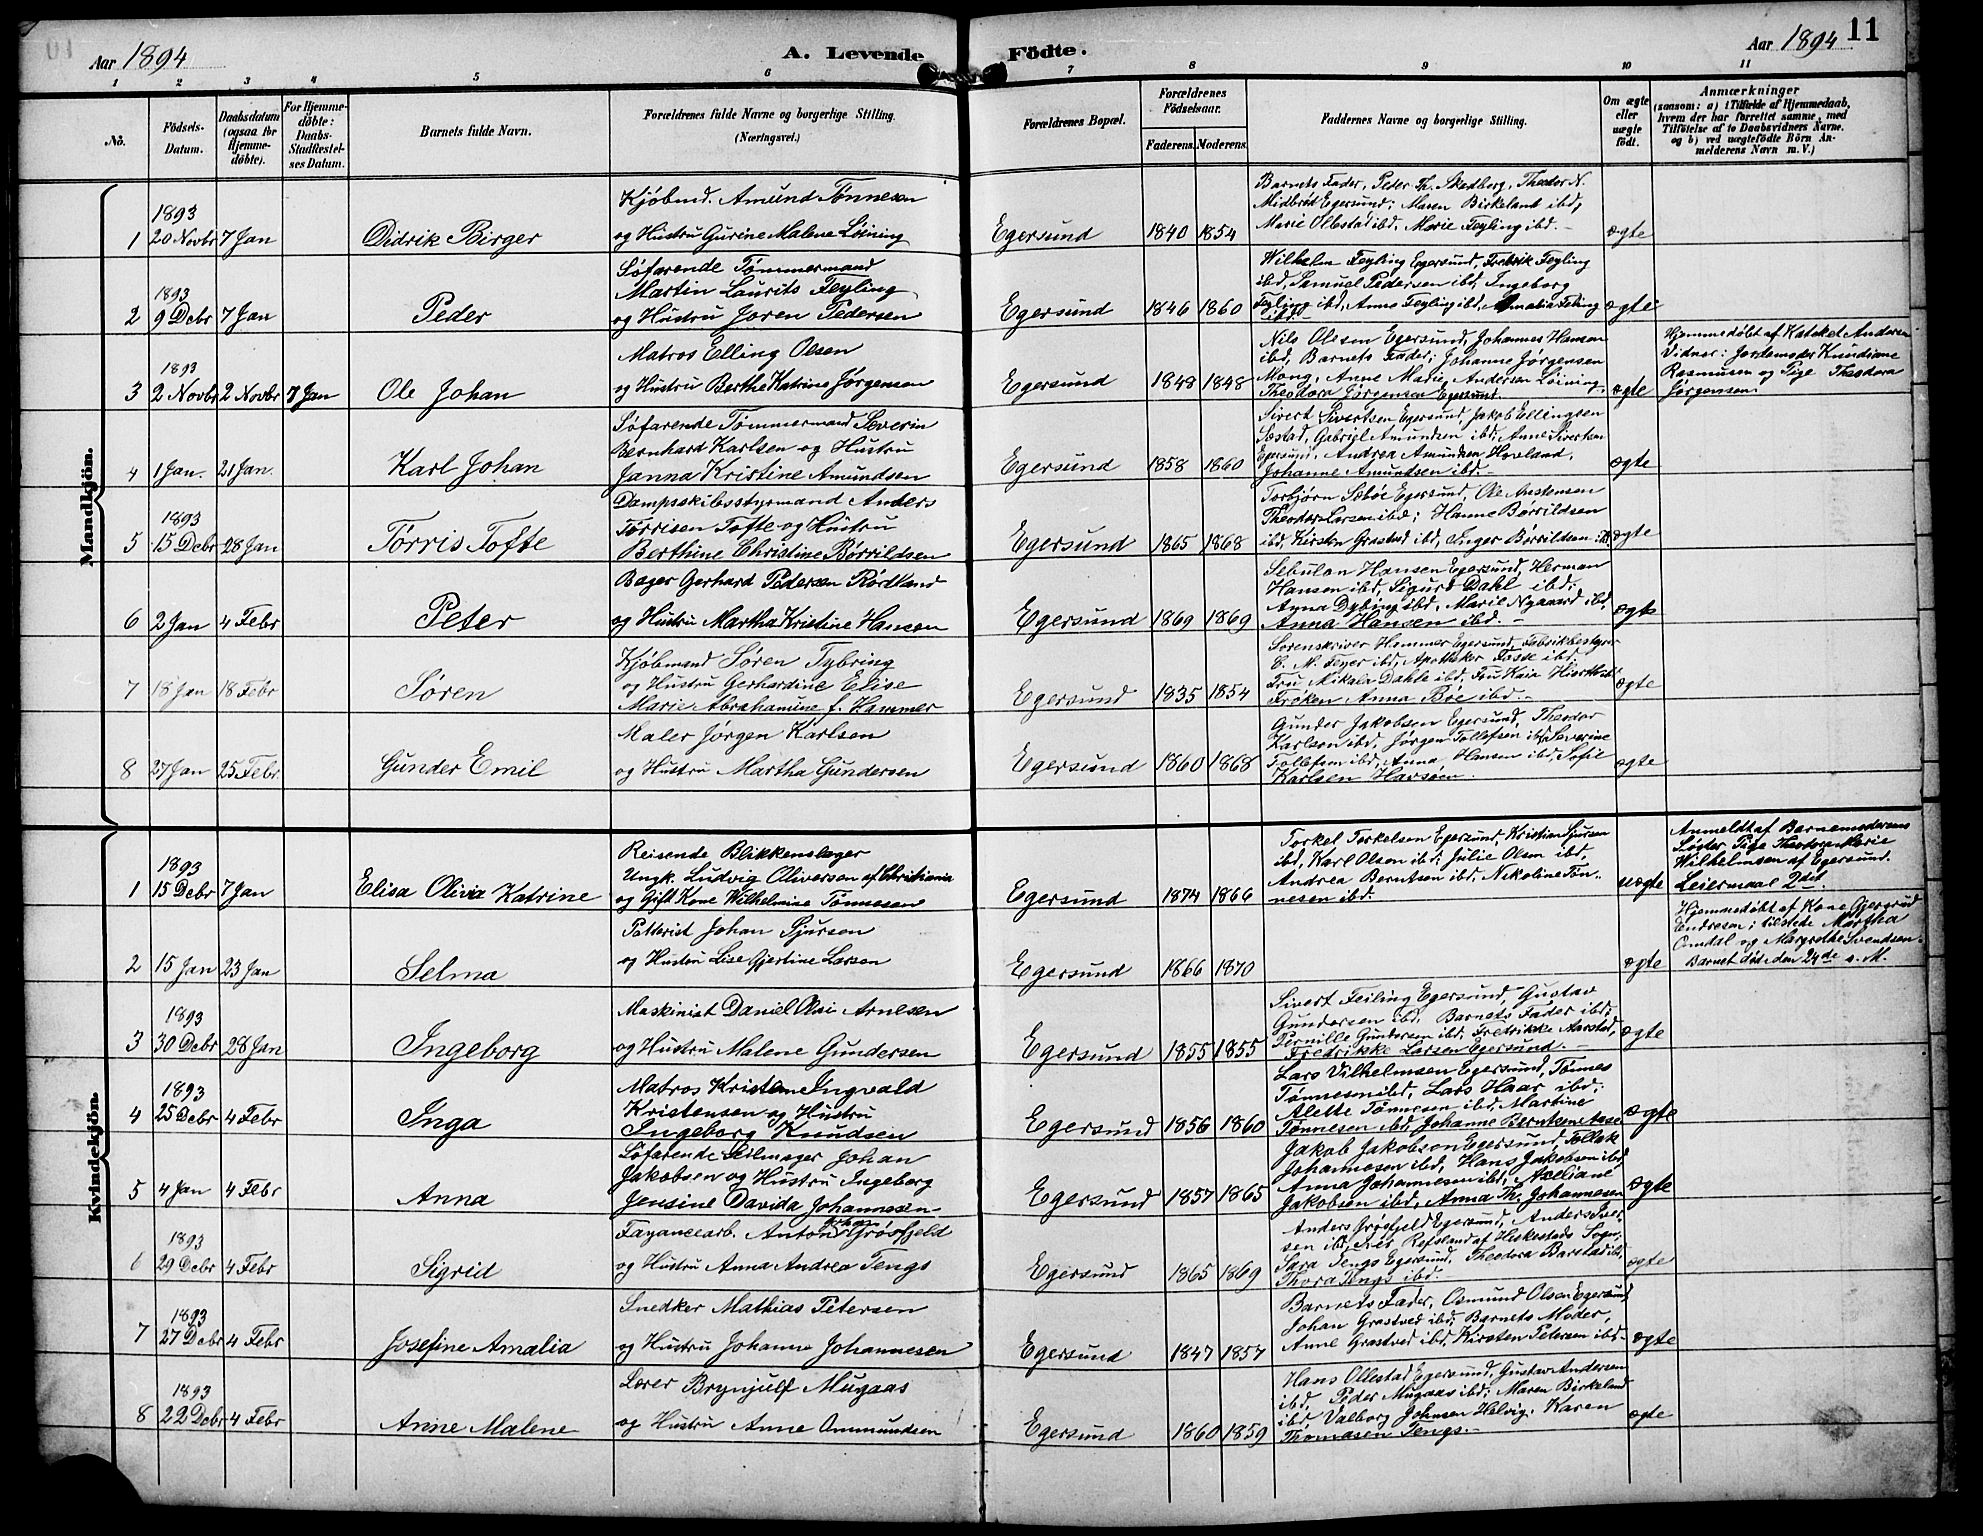 Aar 1894
A. Levende Födte.
Aar 1894 11
1 2 3 4 5 6 7 8 9 10 11
No.
Födsels-
Datum.
Daabsdatum
(ogsaa for
Hjemme-
döbte).
For Hjemme-
döbte:
Daabs-
Stadfæstel-
ses Datum.
Barnets fulde Navn.
Forældrenes fulde Navne og borgerlige Stilling.
(Næringsvei.)
Forældrenes Bopæl.
Forældrenes
Födselsaar.
Faderens. Moderens.
Faddernes Navne og borgerlige Stilling.
Om ægte
eller
uægte
födt.
Anmærkninger
(saasom: a) i Tilfælde af Hjemmedaab,
hvem der har forrettet samme, med
Tilföielse af to Daabsvidners Navne.
og b) ved uægtefödte Börn An-
melderens Navn m. V.)
Mandkjön.
1 1893 20 Novbr 7 Jan Didrik Birger
Kjøbmd. Amund Tønnesen
og Hustru Gurine Malene Løining
Egersund 1840 1854
Barnets Fader, Peder Th. Skadberg, Theodor N.
Midbrød Egersund; Maren Birkeland ibd,
Marie Ollestad ibd, Marie Feyling ibd.
ægte
2 1893 9 Debr 7 Jan Peder
Søfarende Tømmermand
Martin Laurits Feyling
og Hustru Joren Pedersen
Egersund 1846 1860
Wilhelm Feyling Egersund, Fredrik Feyling
ibd, Samuel Pedersen ibd, Ingeborg
Feyling ibd, Anne Feyling ibd, Amalia Feling
ibd.
ægte
3 1893 2 Novbr 2 Novbr 7 Jan Ole Johan
Matros Elling Olsen
og Hustru Berthe Katrine Jørgensen
Egersund 1848 1848
Nils Olsen Egersund, Johannes Hansen
ibd, Barnets Fader; Johanne Jørgensen
Mong, Anne Marie Andersen Løining,
Theodora Jørgensen Egersund.
ægte
Hjemmedøbt af Kateket Andersen
Vidner: Jordemoder Kundiane
Rasmusen og Pige Theodora
Jørgensen.
4 1 Jan. 21 Jan. Karl Johan
Søfarende Tømmermand Severin
Bernhard Karlsen og Hustru
Janna Kristine Amundsen
Egersund 1858 1860
Sivert Sivertsen Egersund, Jakob Ellingsen
Sæstad, Gabriel Amundsen ibd; Anne Sivertsen
Egersund, Andrea Amundsen Hovland,
Johanne Amundsen ibd.
ægte
5 1893 15 Debr 28 Jan Tørris Tofte
Dampskibsstyrmand Anders
Tørrisen Tofte og Hustru
Berthine Christine Børrildsen
Egersund 1865 1868
Torbjørn Sæbøe Egersund, Ole Austensen
Theodor Larsen ibd; Hanne Børrildsen
ibd, Kirsten Grastad ibd, Inger Børrildsen ibd.
ægte
6 2 Jan 4 Febr Peter
Bager Gerhard Pedersen Rødland
og Hustru Martha Kristine Hansen
Egersund 1869 1869
Sebulon Hansen Egersund, Herman
Hansen ibd, Sigurd Dahl ibd;
Anna Dybing ibd, Marie Nygaard ibd,
Anna Hansen ibd.
ægte
7 18 Jan 18 Febr Søren
Kjøbmand Søren Tybring
og Hustru Gerhardine Elise
Marie Abrahamine f. Hammer
Egersund 1835 1854
Sorenskriver Hammer Egersund, Fabrikbestyrer
C. M. Feyer ibd, Apotheker Fasse ibd
Fru Mikala Dahle ibd, Fru Kaia
Frøken Anna Bøe ibd.
ægte
8 27 Jan 25 Febr. Gunder Emil
Maler Jørgen Karlsen
og Hustru Martha Gundersen
Egersund 1860 1868
Gunder Jakobsen Egersund, Theodor
Karlsen ibd, Jørgen Tollefsen ibd, Severine
Tollefsen ibd, Anna Hansen ibd, Sofie
Karlsen Havsøen.
ægte
Kvindekjön.
1 1893 15 Debr 7 Jan Elisa Olivia Katrine
Reisende Blikkenslager
Ungk. Ludvig Oliversen af Christiania
og Gift Kone Wilhelmine Tønnesen
Egersund 1874 1866
Torkel Torkelsen Egersund, Kristian Sjursen
ibd, Karl Olsen ibd; Julie Olsen ibd,
Andrea Berntsen ibd, Nikoline Tøn-
nesen ibd.
uægte
Anmeldt af Barnemoderens
Søster Pige Theodora Marie
Wilhelmsen af Egersund.
Leiermaal 2det.
2 15 Jan 23 Jan Selma
Potterist Johan Sjursen
og Hustru Lise Gjertine Larsen
Egersund 1866 1870
ægte
Hjemmedøbt af Kone Gjersrud
Endresen; tilstede Martha
Omdal og Margrethe Svendsen.
Barnet død den 24de s. M.
3 1893 30 Debr 28 Jan Ingeborg
Maskinist Daniel Arnesen
og Hustru Malene Gundersen
Egersund 1855 1855
Sivert Feiling Egersund, Gustav
Gundersen ibd, Barnets Fader ibd;
Pernille Gundersen ibd, Fredrikke Aarstad,
Fredrikke Larsen Egersund.
ægte
4 1893 25 Debr 4 Febr Inga
Matros Kristen Ingvald
Kristensen og Hustru
Ingeborg Knudsen
Egersund 1856 1860
Lars Vilhelmsen Egersund, Tønnes
Tønnesen ibd, Lars Haar ibd;
Alette Tønnesen ibd, Martine
Tønnesen ibd, Johanne Berntsen Aase
ægte
5 4 Jan 4 Febr Anna
Søfarende Seilmager Johan
Jakobsen og Hustru Ingeborg
Jensine Davida Johannesen
Egersund 1857 1865
Jakob Jakobsen Egersund, Tollak
Johannesen ibd, Hans Jakobsen ibd,
Anna Johannesen ibd, Axeliane
Jakobsen ibd, Anna Th. Johannesen
ægte
6 1893 29 Debr 4 Febr Sigrid
Fayancearb. Anton Johan Grøsfjeld
og Hustru Anna Andrea Tengs
Egersund 1865 1869
Anders Grøsfjeld Egersund, Anders Iver-
sen ibd, Refsland af Heskestads Sogn;
Sara Tengs Egersund, Theodora Barstad ibd,
Thora Tengs ibd.
ægte
7 1893 27 Debr 4 Febr Josefine Amalia
Snedker Mathias Petersen
og Hustru Johanne Johannesen
Egersund 1847 1857
Barnets Fader, Osmund Olsen Egersund,
Johan Grastved ibd; Barnets Moder,
Anne Grastved ibd, Kirsten Petersen ibd
ægte
8 1893 22 Debr 4 Febr Anne Malene
Lærer Brynjulf Mugaas
og Hustru Anne Ommundsen
Egersund 1860 1859
Hans Ollestad Egersund, Gustav Andersen
ibd, Peder Mugaas ibd; Maren Birkeland
ibd, Valborg Johnsen Helvig, Karen
Thomasen Tengs.
ægte